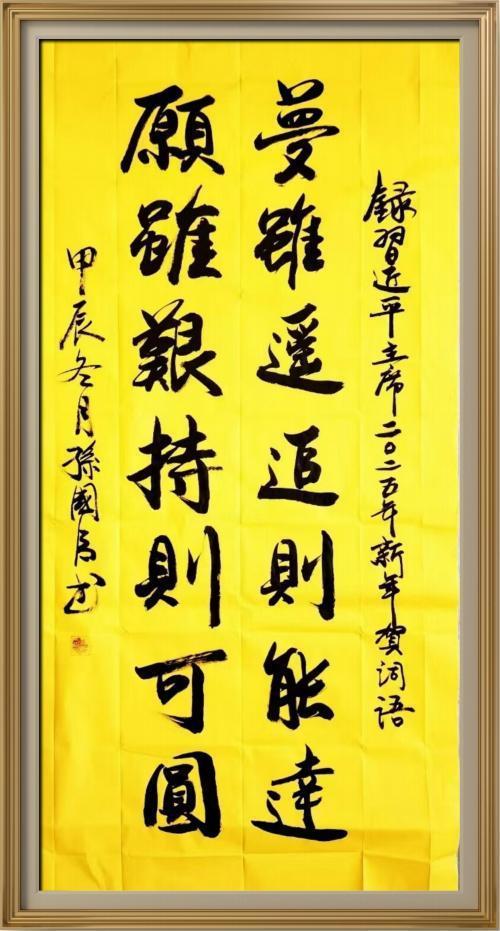 錄習近平主席二〇二五年新年賀詞語
夢雖遥追則能達
願雖艱持則可圓
甲辰冬月孫國